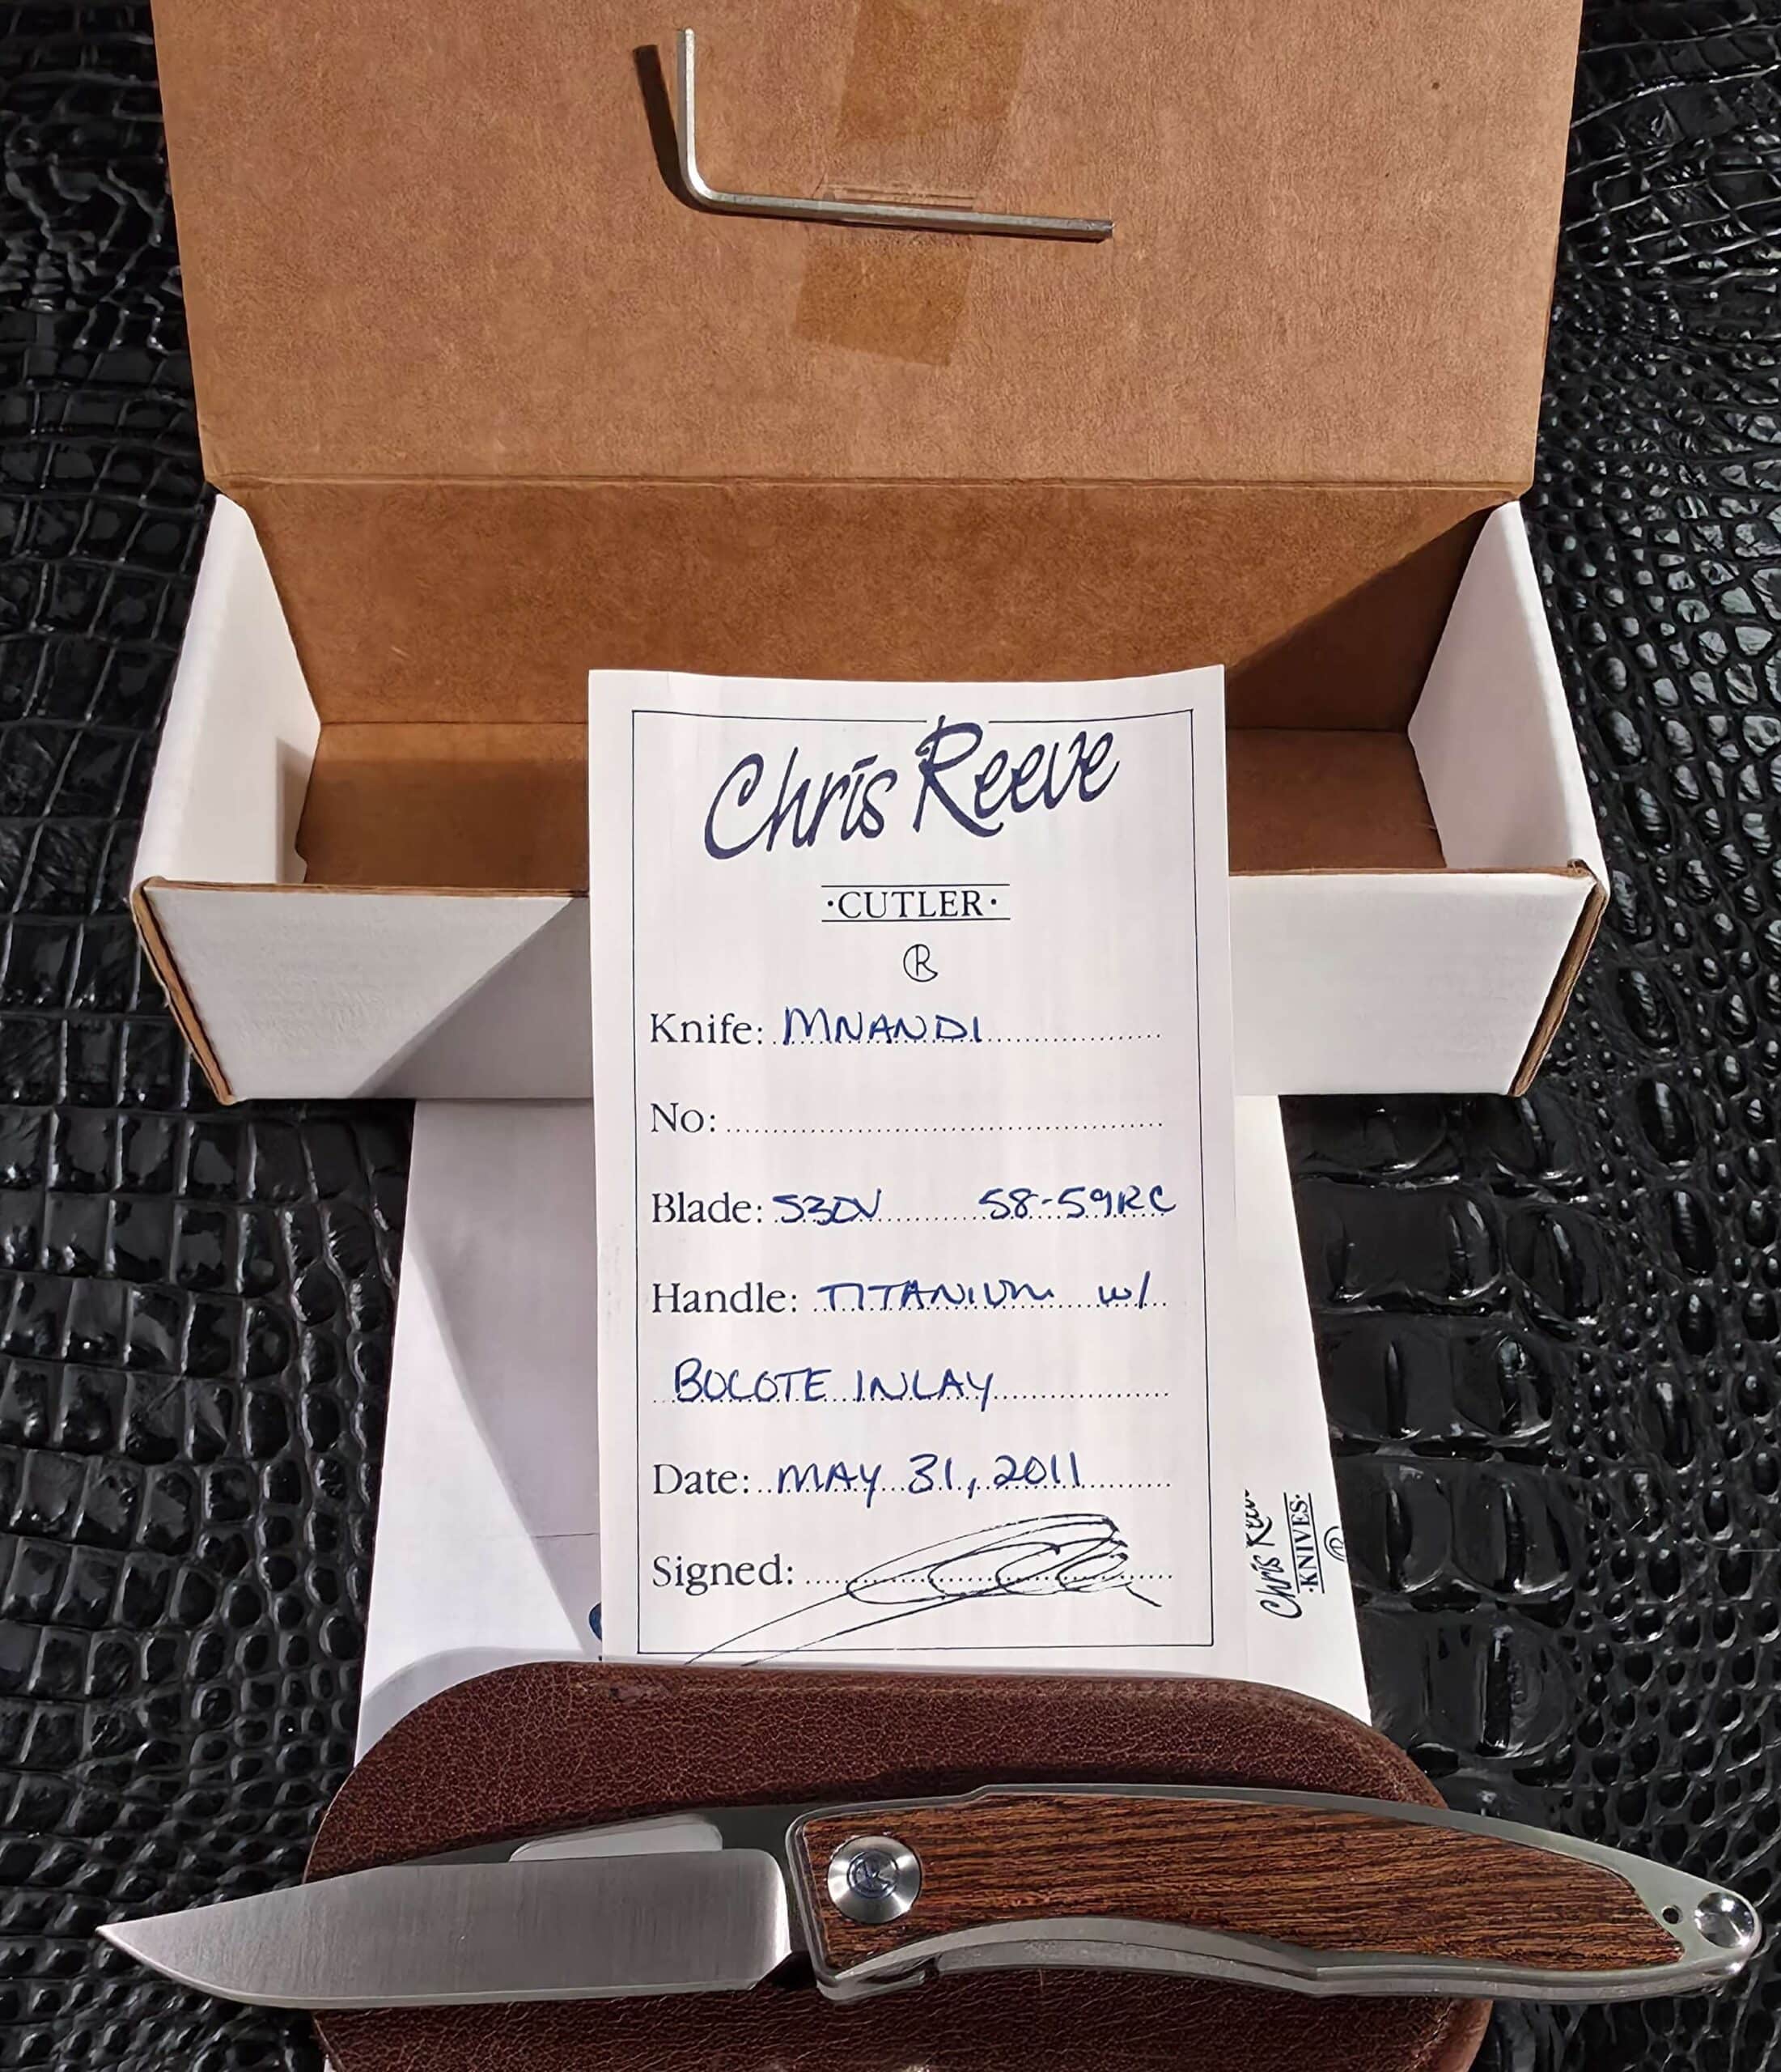 Chris Reeve
·CUTLER·
Knife: MNANDI
No:
Blade: S30V 58-59RC
Handle: TITANIUM w/
BOCOTE INLAY
Date: MAY 31, 2011
Signed:
Chris Reeve
·KNIVES·